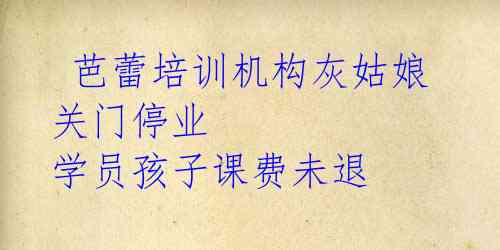 芭蕾培训机构灰姑娘
关门停业
学员孩子课费未退